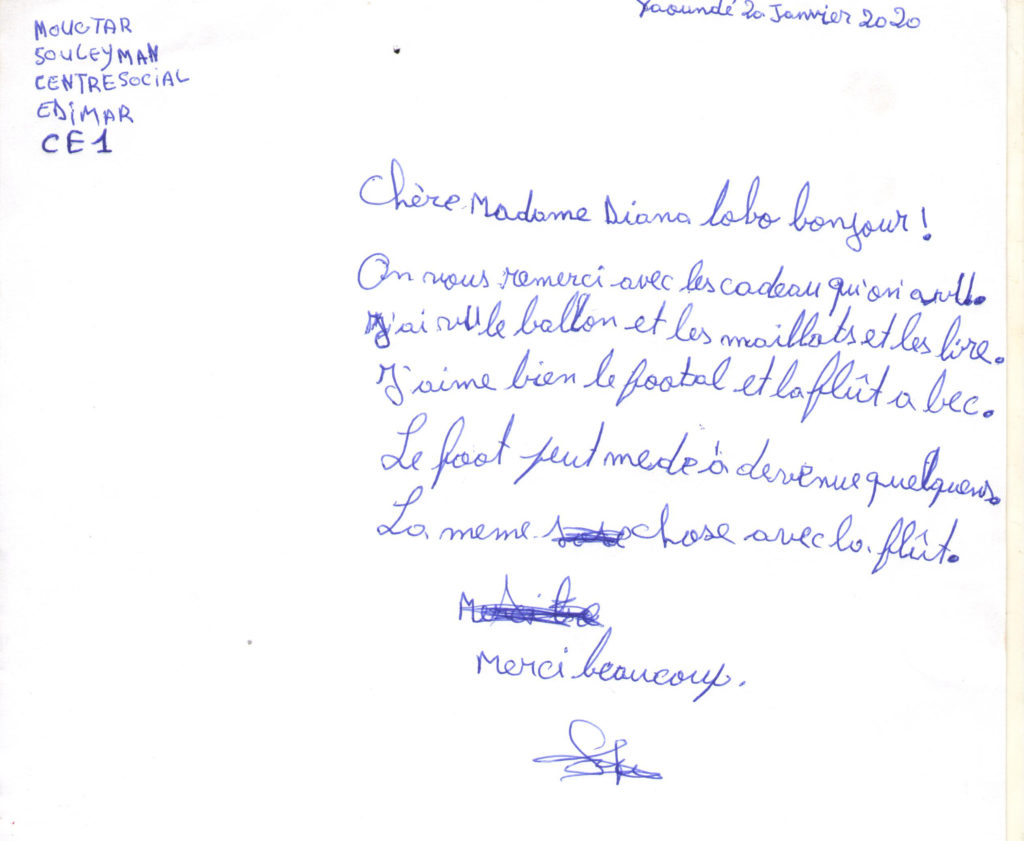 MOUCTAR
SOULEYMAN
CENTRE SOCIAL
EDIMAR
CE1
Yaoundé 20 Janvier 2020
Chère Madame Diana lobo bonjour !
On vous remerci avec les cadeau qu'on a vu.
J'ai vu le ballon et les maillots et les livre.
J'aime bien le footal et la flût a bec.
Le foot peut mede à devenue quelquens.
La meme chose avec la flût.
Merci beaucoup.